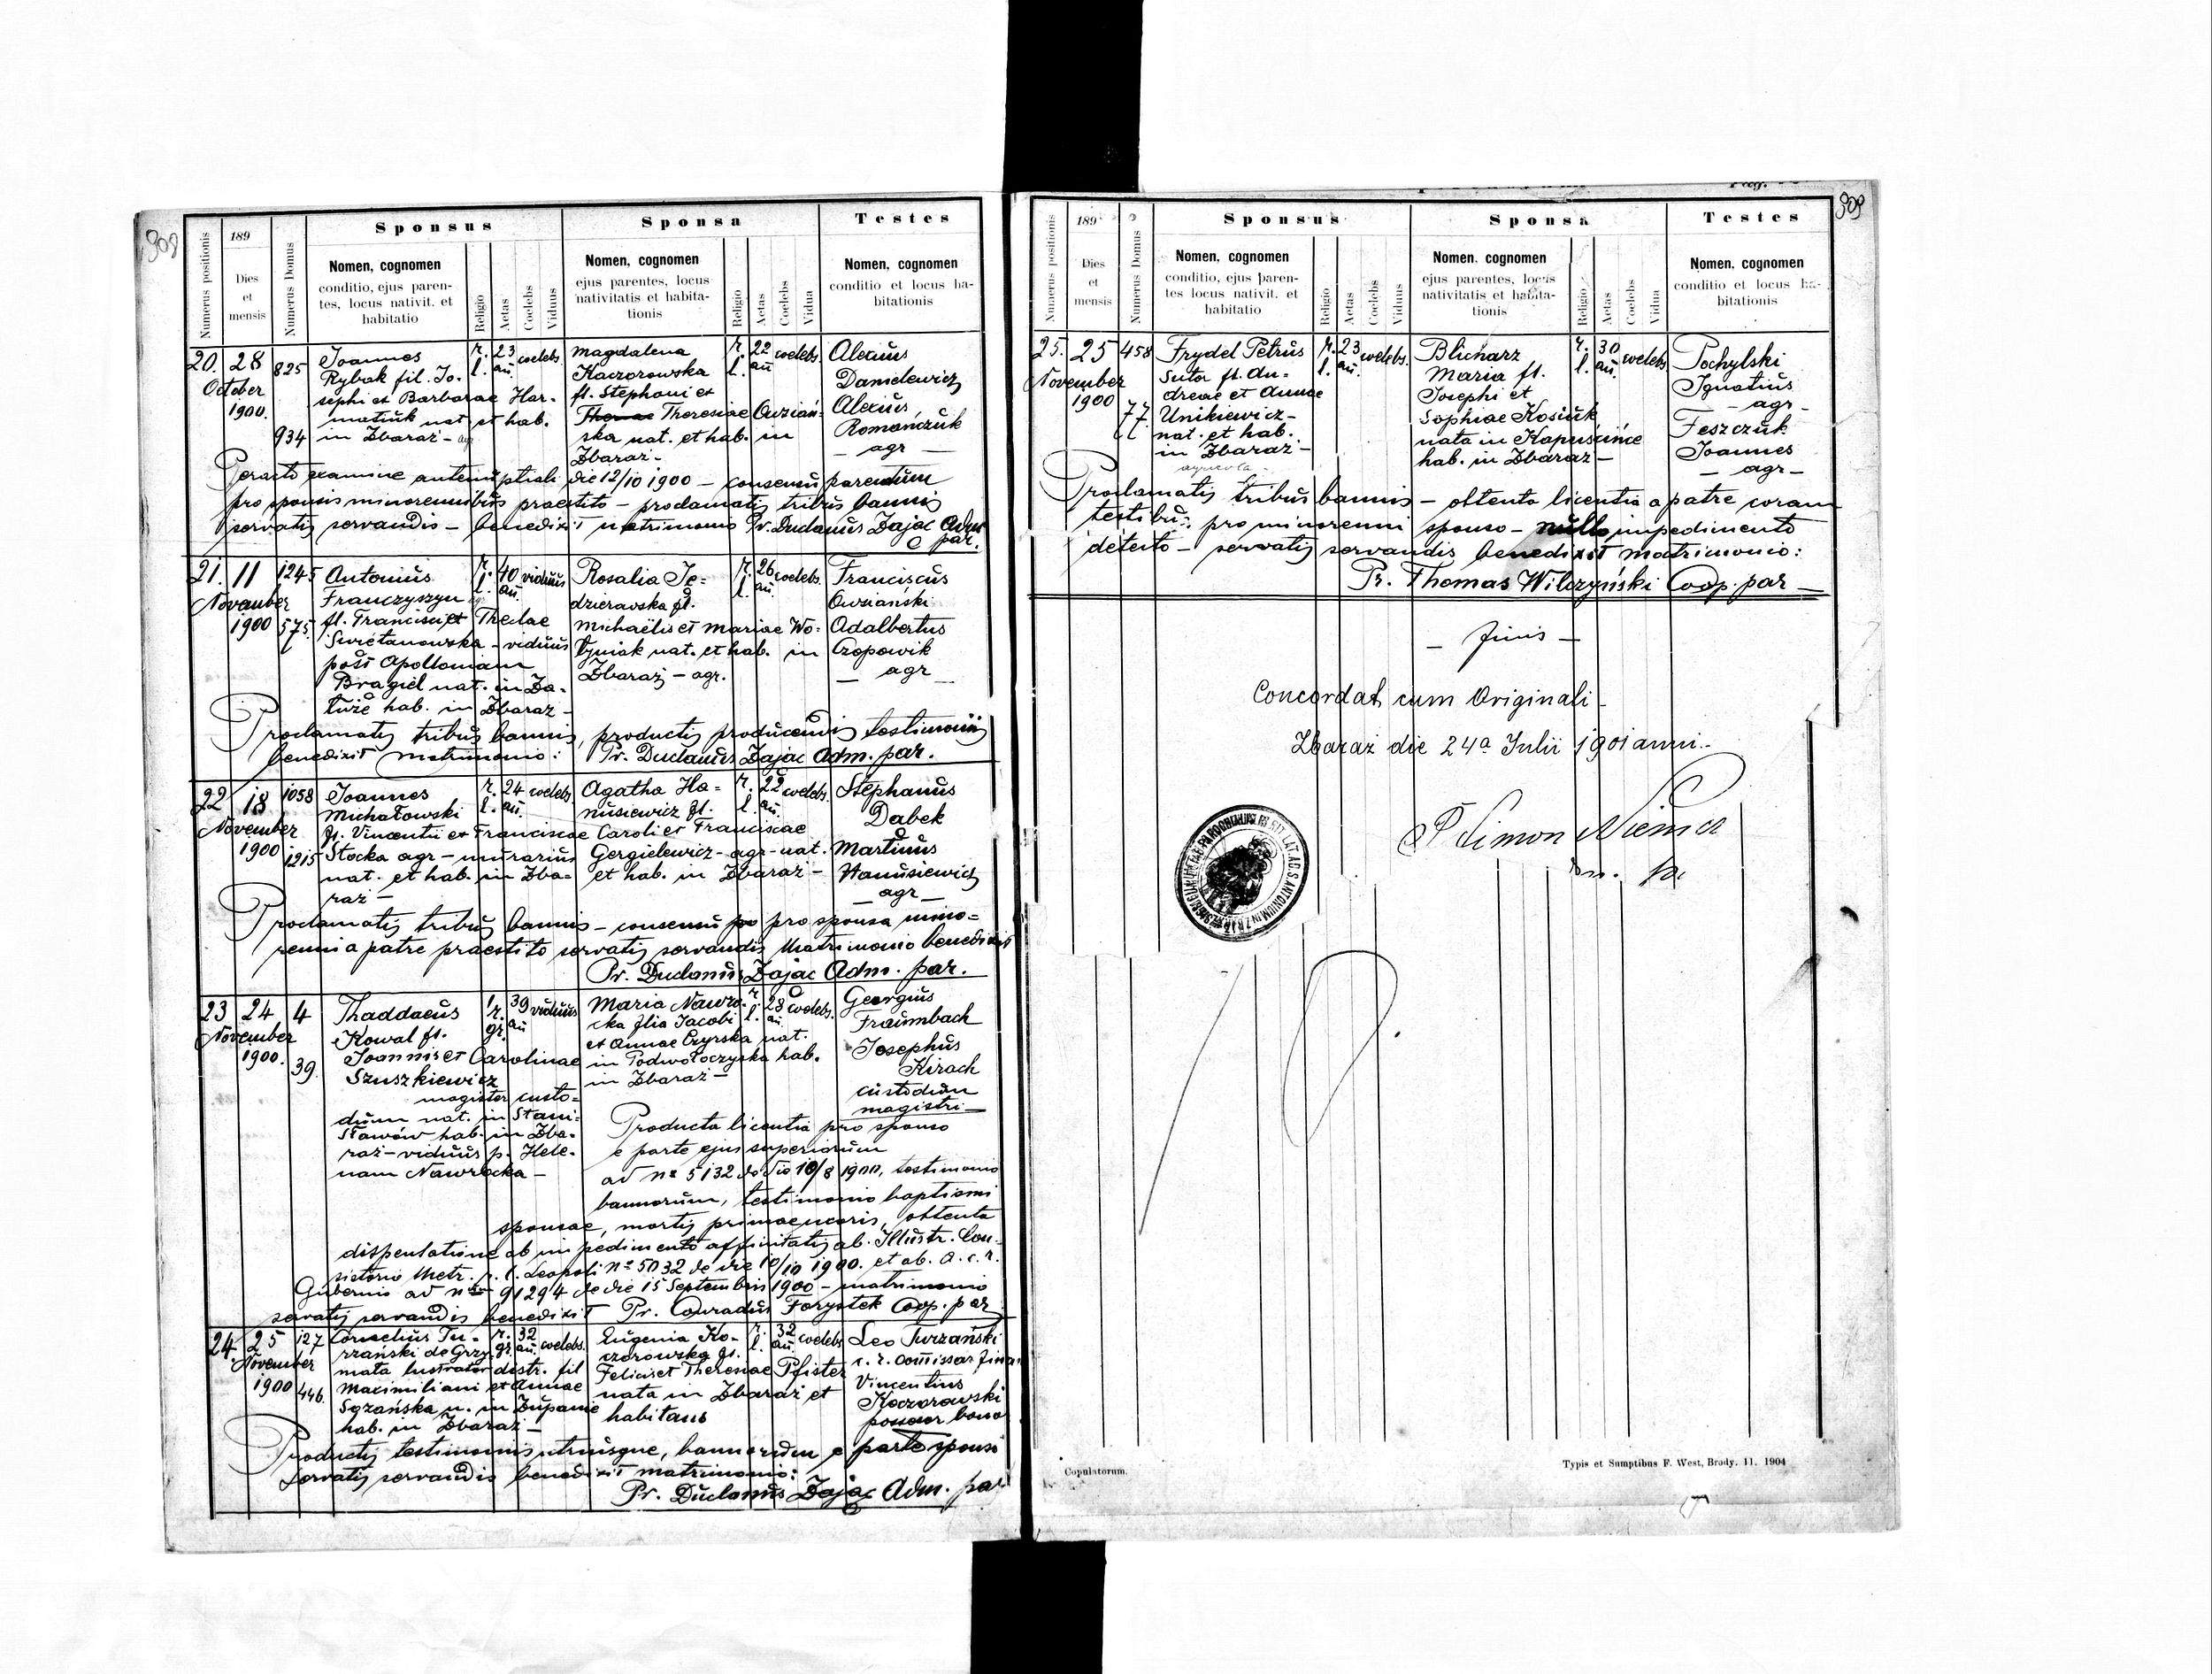 309
189
Numerus positionis
Dies et mensis
Numerus Domus
Sponsus
Nomen, cognomen
conditio, ejus paren-
tes, locus nativit. et
habitatio
Religio
Aetas
Coelebs
Viduus
Sponsa
Nomen, cognomen
ejus parentes, locus
nativitatis et habita-
tionis
Religio
Aetas
Coelebs
Vidua
Testes
Nomen, cognomen
conditio et locus ha-
bitationis
20. 28
October
1900.
825
934
Joannes
Rybak fil. Jo-
sephi et Barbarae Har-
matiuk nat et hab.
in Zbaraż -
r. l. 23 an. coelebs.
Magdalena
Kaczorowska
fl. Stephani et
Theresiae Owziań-
ska nat. et hab. in
Zbaraż -
r. l. 22 an coelebs.
Alexius
Danielewicz
Alexius
Romańczuk
- agr -
Peracto examine antenuptiali die 12/10 1900 - consensu parentum
pro sponsis minorennibus praestito - proclamatis tribus bannis
servatis servandis - benedixit matrimonio Pr. Duclanus Zając Adm
par.
21. 11
November
1900
1245
575.
Antonius
Franczyszyn
fl. Francisci et Theclae
Swietanowska - viduus
post Apolloniam
Bragiel nat. in Za-
łuże hab. in Zbaraż -
r. l. 40 an. viduus
Rosalia Je-
dzierowska fl.
Michaëlis et Mariae Wo-
tyniak nat. et hab. in
Zbaraż - agr.
r. l. 26 an. coelebs.
Franciscus
Owsiański
Adalbertus
Czopowik
- agr -
Proclamatis tribus bannis, productis producendis testimoniis
benedixit matrimonio: Pr. Duclanus Zając Adm. par.
22 18
November
1900
1058
1215
Joannes
Michałowski
fl. Vincentii et Franciscae
Stocka agr - murarius
nat. et hab. in Zba-
raż -
r. l. 24 an. coelebs
Agatha Ha-
nusiewicz fl.
Caroli et Franciscae
Gergielewicz - agr - nat.
et hab. in Zbaraż -
r. l. 22 an. coelebs.
Stephanus
Dąbek
Martinus
Hanusiewicz
- agr -
Proclamatis tribus bannis - consensu pro sponsa mino-
renni a patre praestito servatis servandis Matrimonio benedixit
Pr. Duclanus Zając Adm. par.
23 24
November
1900.
4
39.
Thaddaeus
Kowal fl.
Joannis et Carolinae
Szuszkiewicz
magister custo-
dum nat. in Stani-
sławów hab. in Zba-
raż - viduus p. Hele-
nam Nawrocka -
r. gr. 39 an viduus
Maria Nawro-
cka filia Jacobi
et Annae Czyrska nat.
in Podwołoczyska hab.
in Zbaraż -
r. l. 28 an. coelebs.
Georgius
Fraumbach
Josephus
Kirach
custodum
magistri -
Producta licentia pro sponso
e parte ejus superiorum
ad nº 5132 de die 10/8 1900, testimonio
bannorum, testimonio baptismi
sponsae, mortis primae uxoris, obtenta
dispensatione ab impedimento affinitatis ab. Illustr. Con-
sistorio Metr. r. l. Leopoli nº 5032 de die 10/10 1900. et ab. A. c. r.
Gubernio ad nro 91294 de die 15 Septembris 1900 - matrimonio
servatis servandis benedixit Pr. Conradus Forystek Coop. par
24. 25
November
1900
127
446.
Cornelius Tu-
rzański de Grzy-
mała lustrator distr. fil
Maximiliani et Annae
Sozańska n. in Żupanie
hab. in Zbaraż -
r. gr. 32 an. coelebs.
Eugenia Ko-
czorowska fl.
Felicis et Theresiae Pfister
nata in Zbaraż et
habitans
r. l. 32 an. coelebs
Leo Turzański
c. r. Comissar finan
Vincentius
Koczorowski
possessor bono
Productis testimoniis utriusque, bannorum e parte sponsi
servatis servandis benedixit matrimonio:
Pr. Duclanus Zając Adm. par
309
Pag.
189
Numerus positionis
Dies et mensis
Numerus Domus
Sponsus
Nomen, cognomen
conditio, ejus paren-
tes locus nativit. et
habitatio
Religio
Aetas
Coelebs
Viduus
Sponsa
Nomen, cognomen
ejus parentes, locus
nativitatis et habita-
tionis
Religio
Aetas
Coelebs
Vidua
Testes
Nomen, cognomen
conditio et locus ha-
bitationis
25. 25
November
1900
458
77
Frydel Petrus
Sutor fl. An-
dreae et Annae
Unikiewicz -
nat. et hab.
in Zbaraż -
agricola -
r. l. 23 an. coelebs.
Blicharz
Maria fl.
Josephi et
Sophiae Kosiuk
nata in Kapuścińce
hab. in Zbaraż -
r. l. 30 an. coelebs.
Pochylski
Ignatius
- agr -
Feszczuk
Joannes
- agr -
Proclamatis tribus bannis - obtenta licentia a patre coram
testibus pro minorenni sponso - nullo impedimento
detecto - servatis servandis benedixit matrimonio:
Pr. Thomas Wilczyński Coop. par -
- Finis -
Concordat cum Originali -
Zbaraż die 24a Julii 1901 anni. -
P Simon Niemca
Copulatorum.
Typis et Sumptibus F. West, Brody. 11. 1904